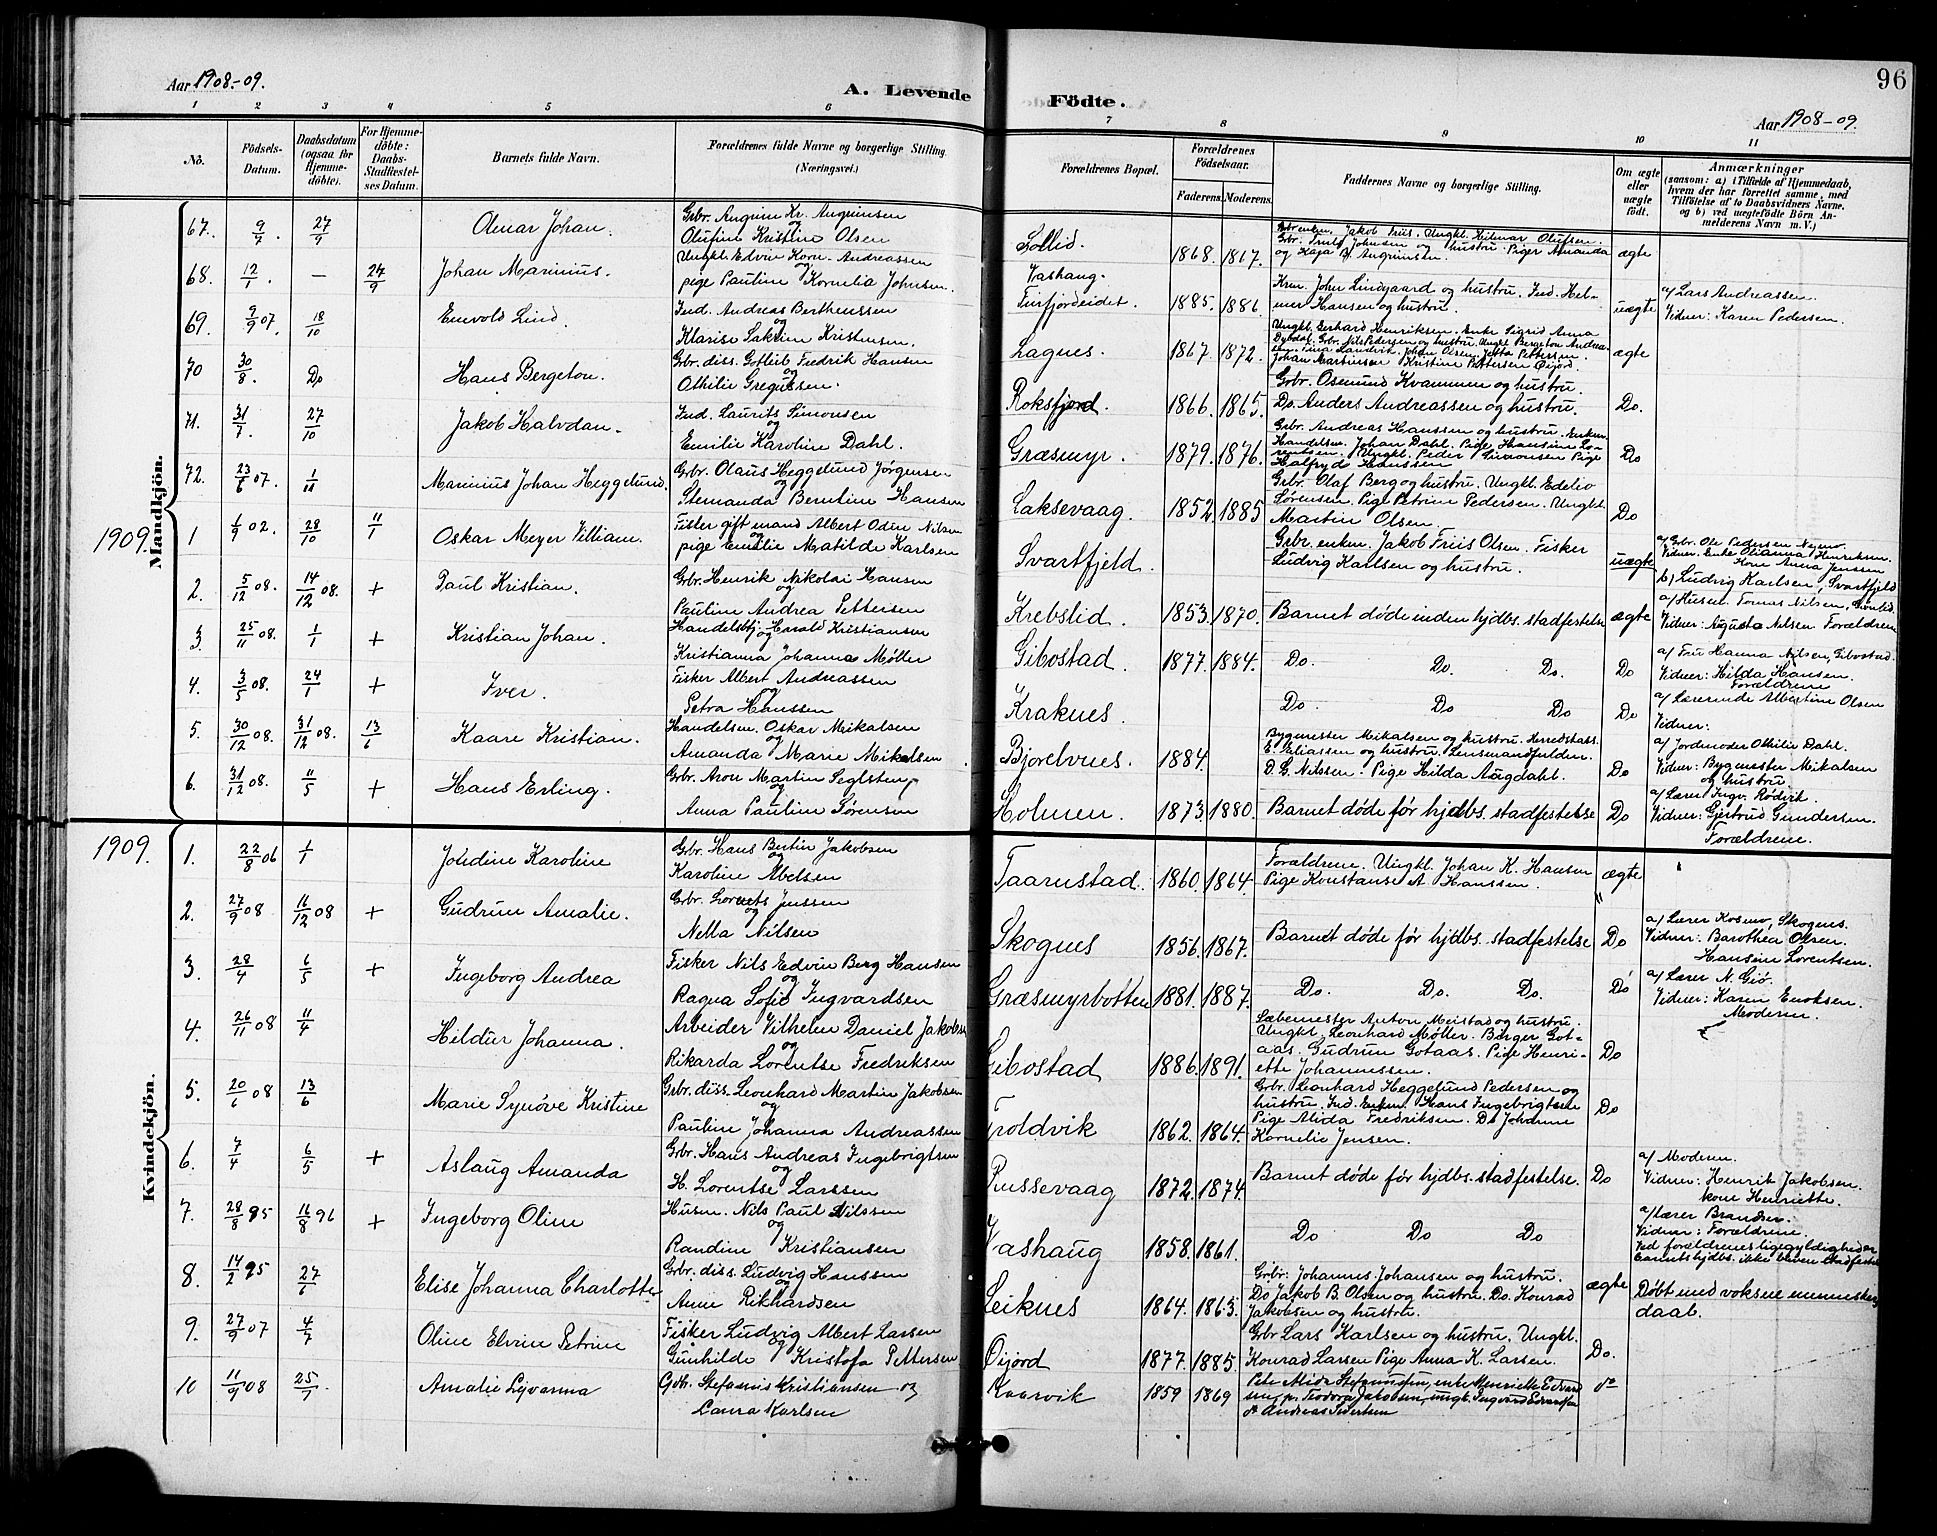 Aar 1908-09.
A. Levende Födte.
96
Aar 1908-09.
1 2 3 4 5 6 7 8 9 10 11
No.
Födsels-Datum.
Daabsdatum (ogsaa for Hjemme-döbte).
For Hjemme-döbte: Daabs-Stadfæstel-ses Datum.
Barnets fulde Navn.
Forældrenes fulde Navne og borgerlige Stilling. (Næringsvei.)
Forældrenes Bopæl.
Forældrenes Födselsaar.
Faderens. Moderens.
Faddernes Navne og borgerlige Stilling.
Om ægte eller uægte födt.
Anmærkninger
(saasom: a) i Tilfælde af Hjemmedaab, hvem der har forrettet samme, med Tilföielse af to Daabsvidners Navne, og b) ved uægtefödte Börn An-melderens Navn m. V.)
Mandkjön.
67. 9/7 27/9 Olmar Johan.
Grbr. Angrim Kr. Angrimsen
og
Olufine Kristine Olsen
Sollid. 1868. 1867.
Grbr. Truls Johnsen og hustru. Piger Amanda
og Kaja B. Angrimsen.
ægte
68. 12/1 — 24/9 Johan Marinius.
Ungkl. Edvin Korn. Andreassen
og
pige Pauline Kornelia Johnsen.
Vashaug.
Finfjordeidet. 1885. 1886.
Krm. John Lindgaard og hustru. Ind. Hel-
mer Hansen og hustru.
uægte
a/ Lars Andreassen.
Vidner: Karen Pedersen.
69. 9/9 07. 18/10 Enevold Lind.
Ind. Andreas Berthenssen
og
Klarise Sakrine Kristensen.
Lagnes. 1867. 1872.
Ungkl. Gerhard Henriksen. Enke Sigrid Anna
Dybdal. Grbr. Nils Pedersen og hustru. Ungkl. Bergeton Andrea-
Johan Martinsen Kristine Pettersen Øijord.
ægte
70 30/8. Do Hans Bergeton.
Grbr. diss. Gotleib Fredrik Hansen
og
Othilie Gregusen.
Roksfjord. 1866. 1865.
Grbr. Osmund Kvammen og hustru.
Do. Anders Andreassen og hustru.
Do.
71. 31/7 27/10 Jakob Halvdan.
Ind. Laurits Simonsen
og
Emilie Karoline Dahl.
Græsmyr. 1879. 1876.
Grbr. Andreas Hanssen og hustru. Enkem.
Handelsm. Johan Dahl. Pige Hansine Lo-
rentsen. Ungkl. Peder Simonsen Pige
Halfryd Hanssen
Do
72. 23/6 07. 1/11 Marinius Johan Heggelund.
Grbr. Olaus Heggelund Jörgensen
og
Stenanda Berntine Hansen
Laksevaag. 1852. 1885
Grbr. Olaf Berg og hustru. Ungkl. Edeliv
Sørensen. Pige Petrine Pedersen. Ungkl.
Martin Olsen.
Do
1909.
1 1/9 02. 28/10 11/1 Oskar Meyer Villiam.
Fisker gift mand Albert Odin Nilsen
og
pige Emilie Matilde Karlsen
Svartfjeld.
Grbr. enkem. Jakob Friis Olsen. Fisker
Ludvig Karlsen og hustru.
uægte
a/ Grbr. Ole Pedersen Nymo.
Vidner: Enke Olianna Henriksen.
Kone Anna Jenssen
b) Ludvig Karlsen, Svartfjeld
2. 5/12 08. 14/12 08. + Paul Kristian.
Grbr. Henrik Nikolai Hansen
og
Pauline Andrea Pettersen
Krebslid. 1853. 1870.
Barnet døde inden hjdbs. stadfestelse
ægte
a/ Husm. Tomas Nilsen, Grönlid.
Vidner: Augusta Nilsen Forældrene
3. 25/11 08. 1/1 + Kristian Johan.
Handelsbtj. Harald Kristiansen
og
Kristianna Johanna Møller
Gibostad. 1877. 1884.
Do. Do. Do. Do
a/ Fru Hanna Nilsen, Gibostad.
Vidner: Hilda Hansen.
Forældrene
4. 3/5 08. 24/1 + Iver.
Fisker Albert Andreassen
og
Petra Hanssen
Kraknes.
Do. Do Do Do
a/ Lærerinde Albertine Olsen
Vidner:
5. 30/12 08. 31/12 08. 13/6 Kaare Kristian.
Handelsm. Oskar Mikalsen
og
Amanda Marie Mikalsen
Bjorelvnes. 1884.
Bygmester Mikalsen og hustru. Herredskass.
E. Eliassen og hustru. Lensmandfuldm.
D. G. Nilssen. Pige Hilda Augdahl.
Do
a/ Jordmoder Othilie Dahl.
Vidner: Bygmester Mikalsen
og hustru.
6. 31/12 08. 11/5 + Hans Erling.
Grbr. Aron Martin Seglsten
og
Anna Pauline Sørensen
Holmen. 1873. 1880.
Barnet døde før hjdbs. stadfestelse
Do
a/ Lærer Ingv. Rödvik.
Vidner: Gjertrud Gundersen.
Forældrene.
Kvindekjön.
1909.
1. 22/8 06 1/1 Joudine Karoline
Grbr. Hans Bertin Jakobsen
og
Karoline Abelsen
Taarnstad. 1860. 1864.
Forældrene. Ungkl. Johan K. Hansen
Pige Konstanse A. Hanssen.
ægte
2. 27/9 08 16/12 08 + Gudrun Amalie.
Grbr. Lorents Jenssen
og
Nella Nilsen
Skognes 1856. 1867.
Barnet døde før hjdbs. stadfestelse
Do
a/ Lærer Kosmo, Skognes.
Vidner: Barothea Olsen.
Hansine Lorentsen.
3. 28/4 6/5 + Ingeborg Andrea
Fisker Nils Edvin Berg Hansen
og
Ragna Sofie Ingvardsen
Græsmyrbotten 1881. 1887.
Do. Do. Do. Do
a/ Lærer N. Gjø.
Vidner: Karen Enoksen.
Moderen.
4. 26/11 08 11/4 Hildur Johanna.
Arbeider Vilhelm Daniel Jakobsen
og
Rikarda Lorentse Fredriksen
Gibostad 1886. 1891.
Sæbemester Anton Meistad og hustru.
Ungkl. Leonhard Møller. Birger Got-
aas. Gudrun Gotaas. Pige Henri-
ette Johannessen.
Do
5. 20/6 08 13/6 Marie Synöve Kristine
Grbr. diss. Leonhard Martin Jakobsen
og
Pauline Johanna Andreassen
Foldvik 1862. 1864.
Grbr. Leonhard Heggelund Pedersen og
hustru. Ind. Enkem. Hans Ingebrigtsen
Pige Alida Fredriksen. Do Johanne
Kornelie Jensen.
Do
6. 7/4 6/5 + Aslaug Amanda
Grbr. Hans Andreas Ingebrigtsen
og
H. Lorentse Larssen
Russevaag 1872. 1874.
Barnet døde før hjdbs. stadfestelse.
Do
a/ Moderen.
Vidner: Henrik Jakobsen.
kone Henriette.
7. 28/8 95 16/8 96 + Ingeborg Oline
Husm. Nils Paul Nilssen
og
Randine Kristiansen
Vashaug 1858. 1861.
Do Do Do
a/ Lærer Brandser.
Vidner: Forældrene.
Ved forældrenes ligegyldighed er
barnets hjdbs. ikke bleven stadfestet
8. 14/2 95 27/6 Elise Johanna Charlotte
Grbr. diss. Ludvig Hanssen
og
Anne Rikhardsen
Leiknes 1864. 1863.
Grbr. Johannes Johansen og hustru.
Do Jakob B. Olsen og hustru. Do. Konrad
Jakobsen og hustru.
ægte
Døbt med voksne menneskers
daab.
9. 27/9 07 4/7 Oline Elvine Petrine
Fisker Ludvig Albert Larsen
og
Gunhilde Kristofa Pettersen
Øijord 1877. 1885.
Grbr Lars Karlsen og hustru. Ungkl.
Konrad Larsen Pige Anna K. Larsen.
Do.
10 11/9 08 25/7 Amalie Lyvanna
Gdb. Stefanus Kristiansen og
Laura Karlsen
Kaarvik 1859 1869
do Andreas Pedersen
do